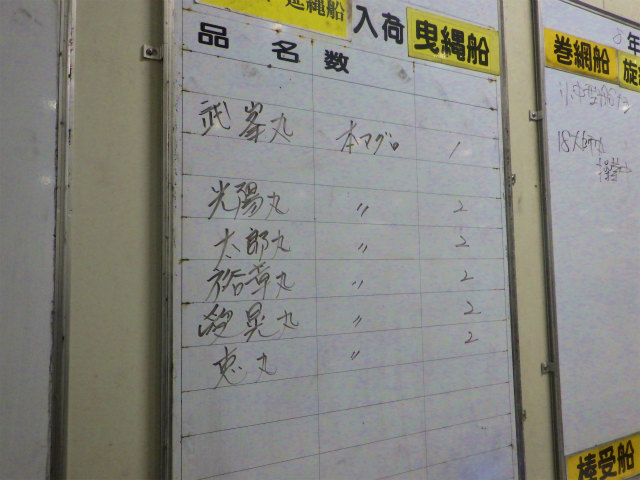 延縄船 入荷 曳縄船
品名 数
武峯丸 本マグロ 1
光陽丸 〃 2
太郎丸 〃 2
裕幸丸 〃 2
晃丸 〃 2
恵丸 〃 2
巻網船 旋
年
18大師丸
操業中
棒受船